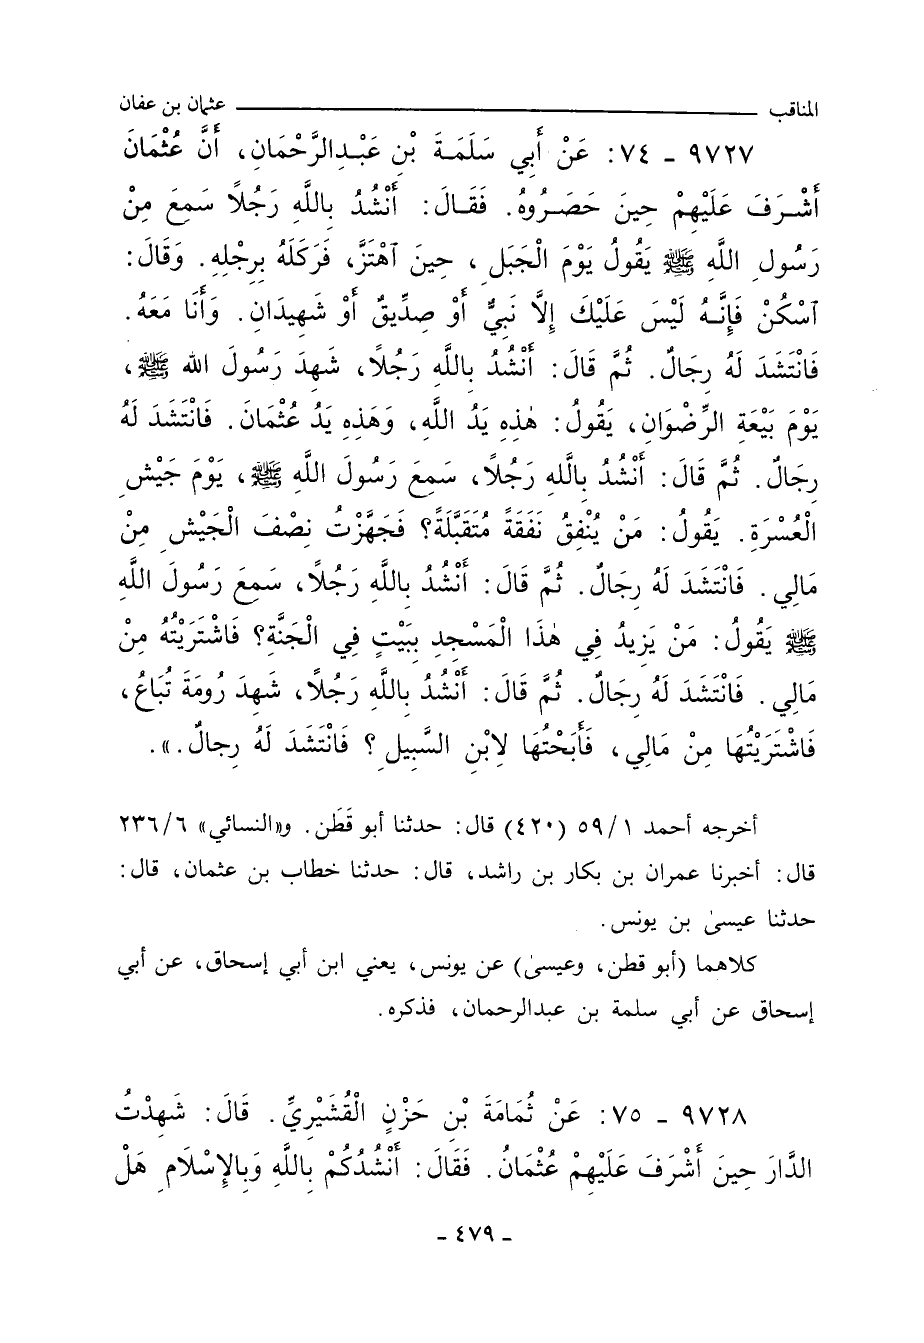 المناقب ــــــــــــــــ عثمان بن عفان
٩٧٢٧ ـ ٧٤: عَنْ أَبِي سَلَمَةَ بْنِ عَبْدِالرَّحْمَانِ، أَنَّ عُثْمَانَ
أَشْرَفَ عَلَيْهِمْ حِينَ حَصَرُوهُ. فَقَالَ: أَنْشُدُ بِاللَّهِ رَجُلاً سَمِعَ مِنْ
رَسُولِ اللَّهِ ﷺ يَقُولُ يَوْمَ الْجَبَلِ، حِينَ اهْتَزَّ، فَرَكَلَهُ بِرِجْلِهِ. وَقَالَ:
اسْكُنْ فَإِنَّهُ لَيْسَ عَلَيْكَ إِلاَّ نَبِيٌّ أَوْ صِدِّيقٌ أَوْ شَهِيدَانِ. وَأَنَا مَعَهُ.
فَانْتَشَدَ لَهُ رِجَالٌ. ثُمَّ قَالَ: أَنْشُدُ بِاللَّهِ رَجُلاً، شَهِدَ رَسُولَ الله ﷺ،
يَوْمَ بَيْعَةِ الرِّضْوَانِ، يَقُولُ: هٰذِهِ يَدُ اللَّهِ، وَهَذِهِ يَدُ عُثْمَانَ. فَانْتَشَدَ لَهُ
رِجَالٌ. ثُمَّ قَالَ: أَنْشُدُ بِاللَّهِ رَجُلاً، سَمِعَ رَسُولَ اللَّهِ ﷺ، يَوْمَ جَيْشِ
الْعُسْرَةِ. يَقُولُ: مَنْ يُنْفِقُ نَفَقَةً مُتَقَبَّلَةً؟ فَجَهَّزْتُ نِصْفَ الْجَيْشِ مِنْ
مَالِي. فَانْتَشَدَ لَهُ رِجَالٌ. ثُمَّ قَالَ: أَنْشُدُ بِاللَّهِ رَجُلاً، سَمِعَ رَسُولَ اللَّهِ
ﷺ يَقُولُ: مَنْ يَزِيدُ فِي هٰذَا الْمَسْجِدِ بِبَيْتٍ فِي الْجَنَّةِ؟ فَاشْتَرَيْتُهُ مِنْ
مَالِي. فَانْتَشَدَ لَهُ رِجَالٌ. ثُمَّ قَالَ: أَنْشُدُ بِاللَّهِ رَجُلاً، شَهِدَ رُومَةَ تُبَاعُ،
فَاشْتَرَيْتُهَا مِنْ مَالِي، فَأَبَحْتُهَا لاِبْنِ السَّبِيلِ؟ فَانْتَشَدَ لَهُ رِجالٌ.».
أخرجه أحمد ٥٩/١ (٤٢٠) قال: حدثنا أبو قَطَن. و«النسائي» ٢٣٦/٦
قال: أخبرنا عمران بن بكار بن راشد، قال: حدثنا خطاب بن عثمان، قال:
حدثنا عيسىٰ بن يونس.
كلاهما (أبو قطن، وعيسىٰ) عن يونس، يعني ابن أبي إسحاق، عن أبي
إسحاق عن أبي سلمة بن عبدالرحمان، فذكره.
٩٧٢٨ ـ ٧٥: عَنْ ثُمَامَةَ بْنِ حَزْنٍ الْقُشَيْرِيِّ. قَالَ: شَهِدْتُ
الدَّارَ حِينَ أَشْرَفَ عَلَيْهِمْ عُثْمَانُ. فَقَالَ: أَنْشُدُكُمْ بِاللَّهِ وَبِالإِسْلَامِ هَلْ
ـ ٤٧٩ ـ